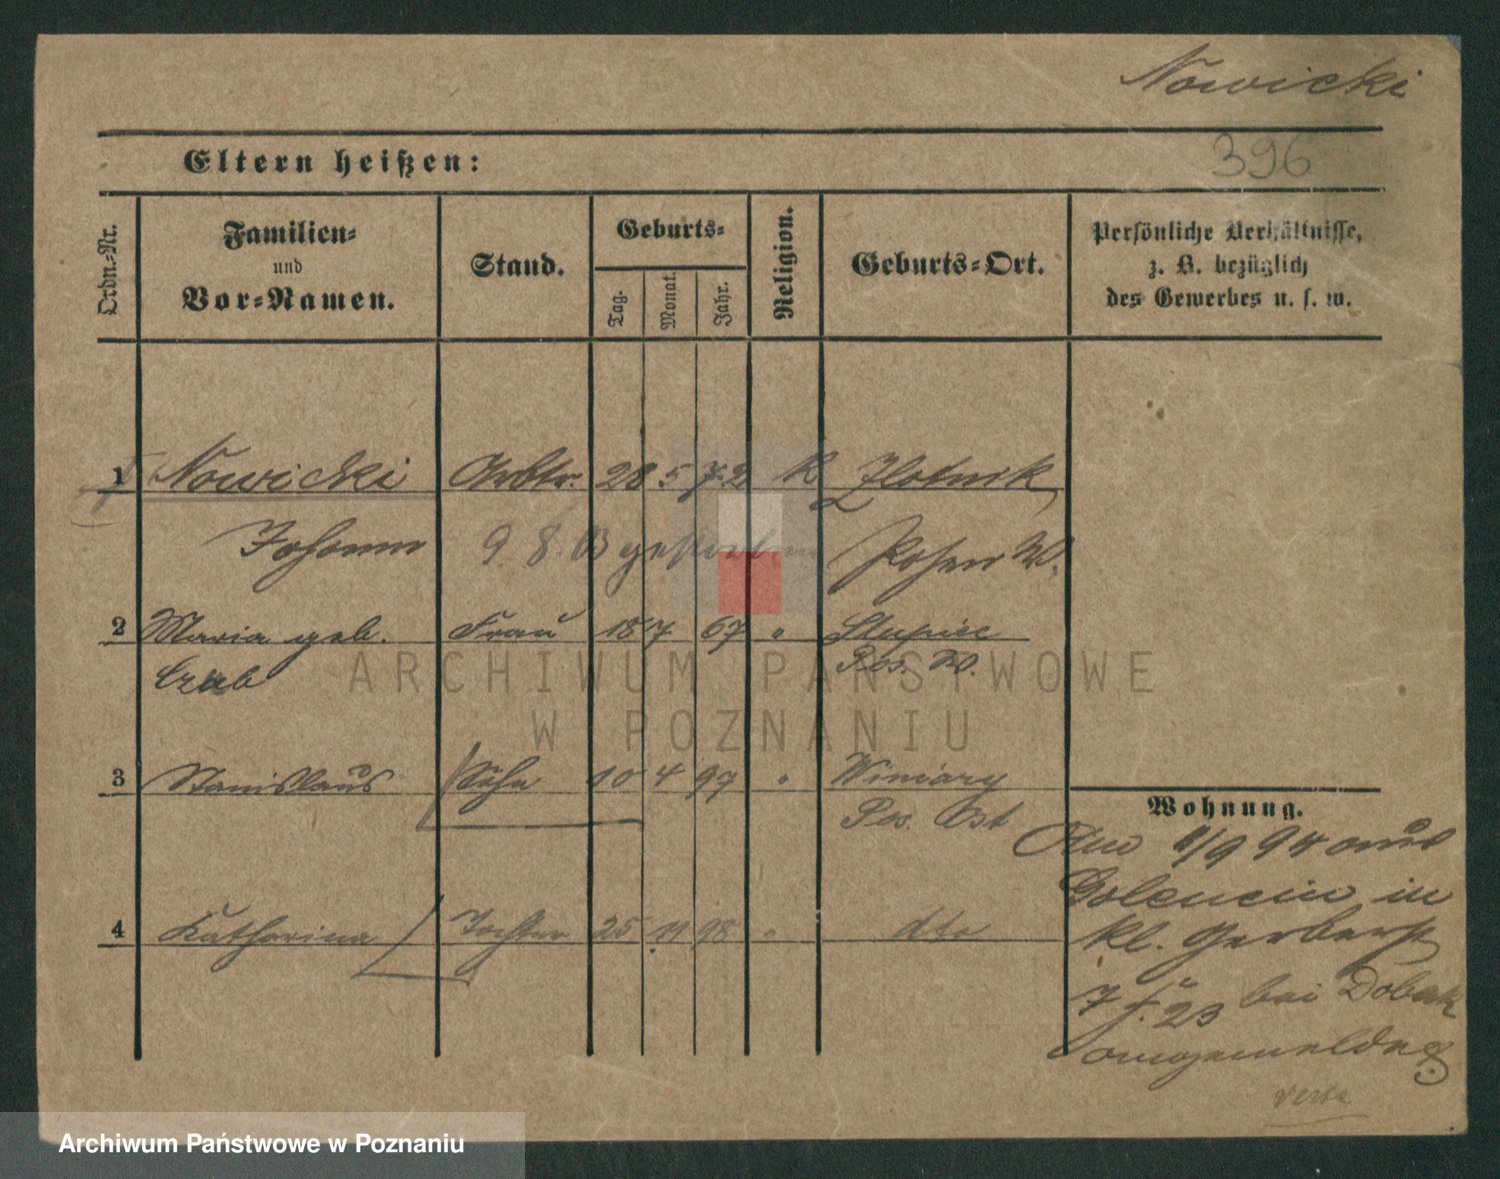 Nowicki
396
Eltern heißen:
Ordn.-Nr.
Familien-
und
Vor-Namen.
Stand.
Geburts-
Tag.
Monat.
Jahr.
Religion.
Geburts-Ort.
Persönliche Verhältnisse,
z. B. bezüglich
des Gewerbes u. s. w.
1 Nowicki Arbtr. 28 5 72 K Zlotnik
Johann 9. 8. 13 gestorben Posen W.
2 Maria geb. Frau 18 7 67 " Slupiec
Pos. W.
3 Stanislaus Sohn 10 4 97 " Winiary
Pos. Ost
4 Katharina Tochter 25 11 98 " dto
Wohnung.
Am /9 94 aus
Golencin in
kl. Gerberst
7 bei Dobak
angemeldet
verte
ARCHIWUM PAŃSTWOWE
W POZNANIU
Archiwum Państwowe w Poznaniu